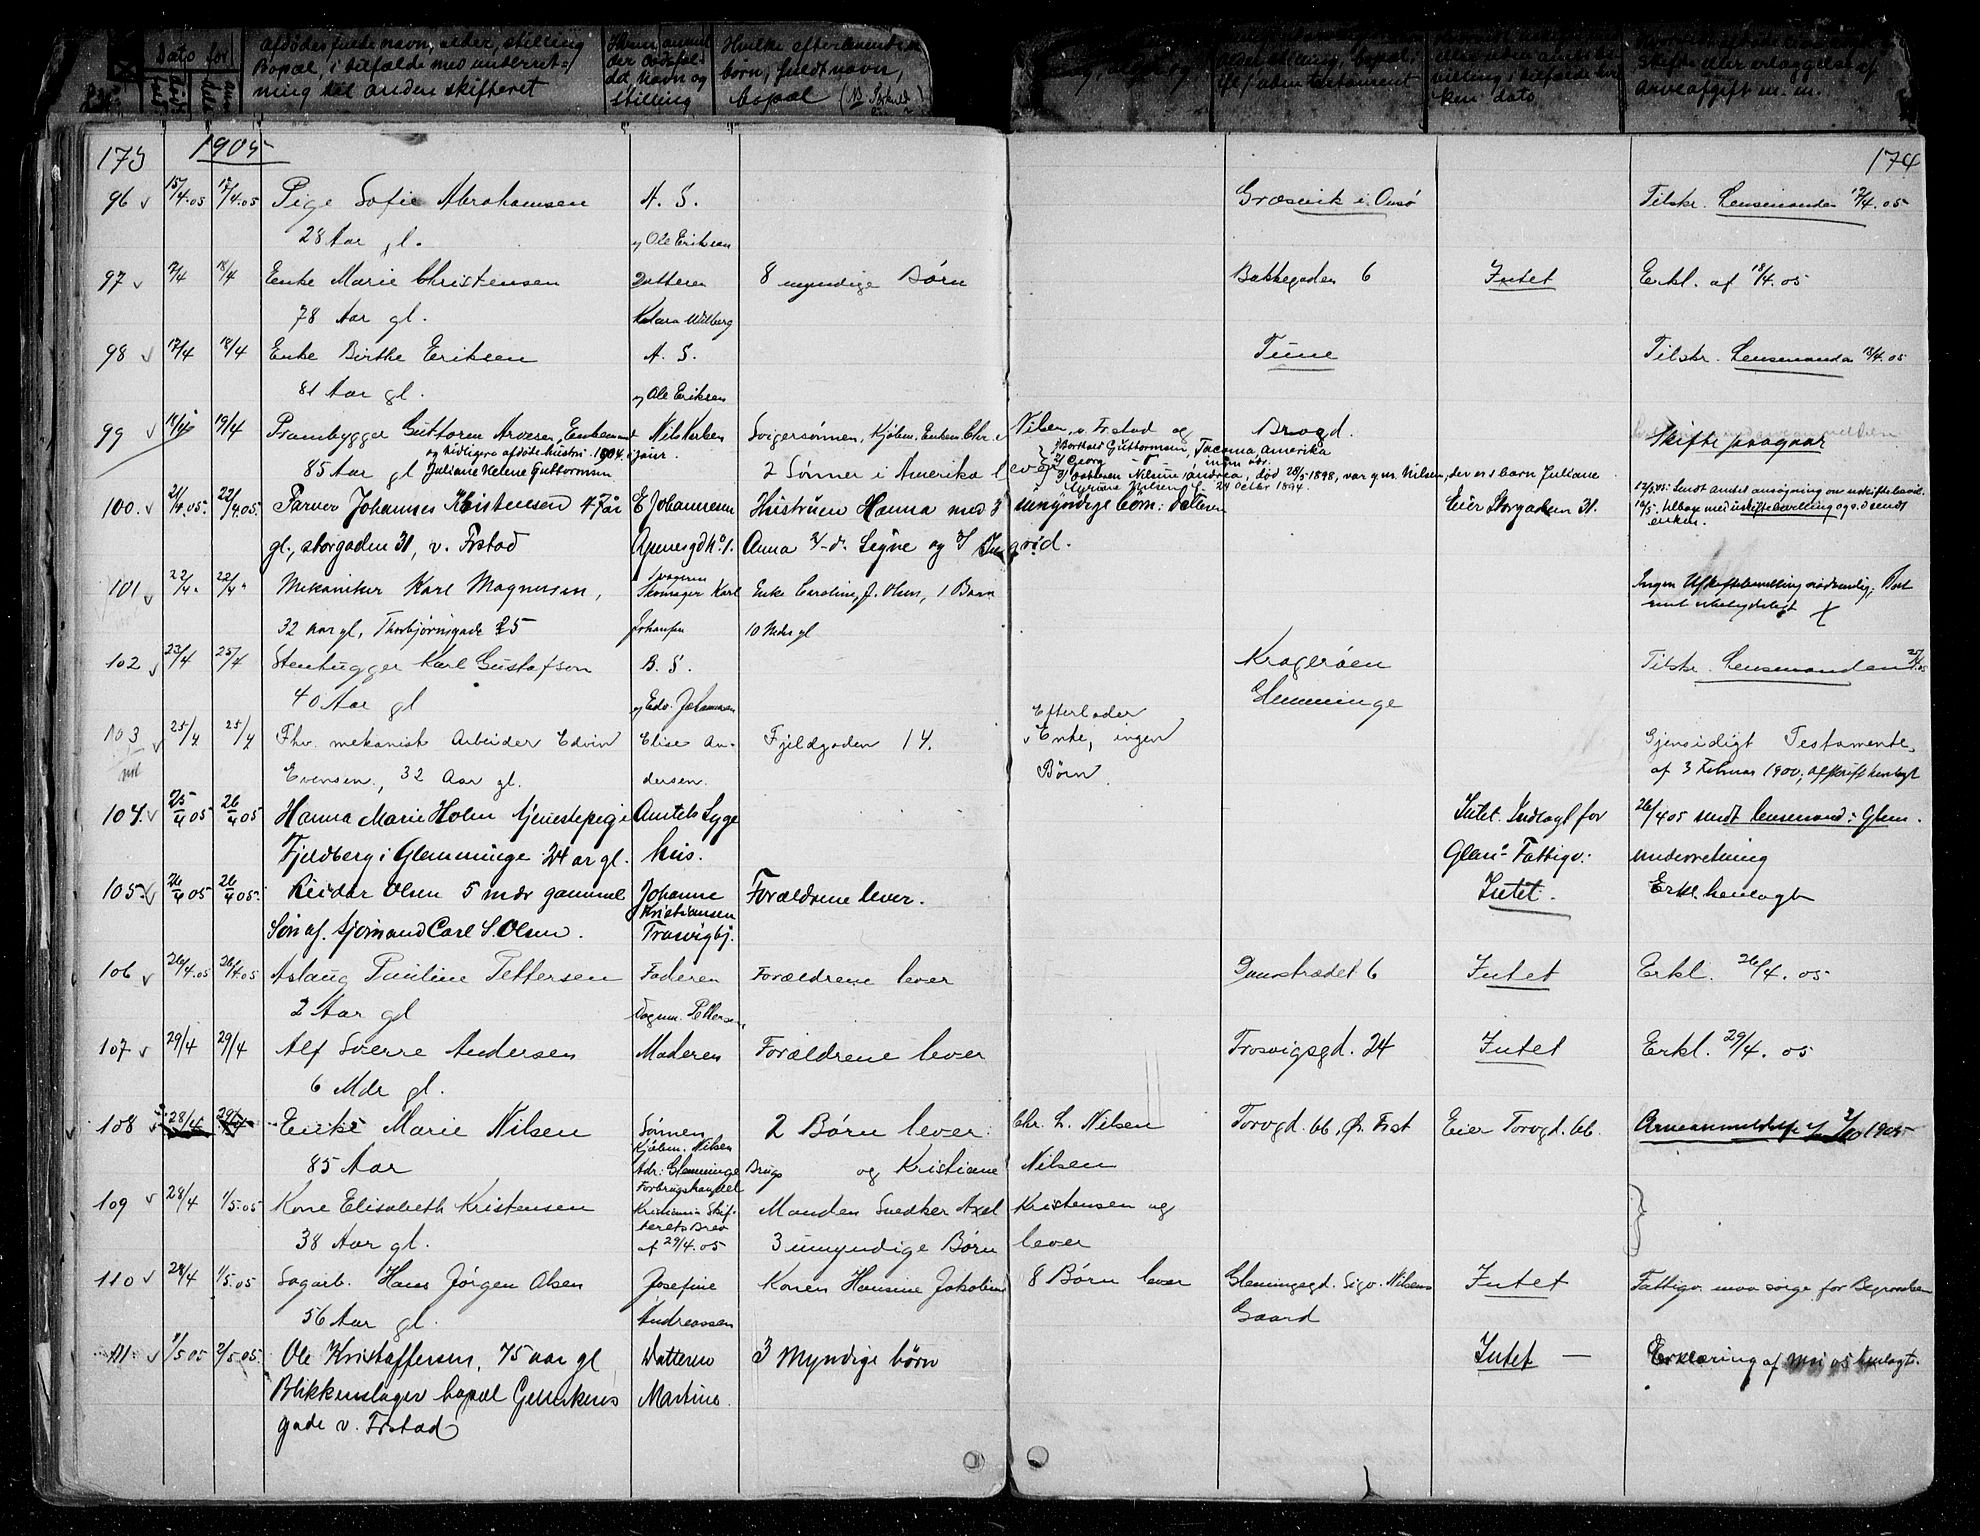 Dato for
Afdødes fulde navn, alder, stilling
Bopæl, i tilfælde med underret=
ning til anden skifteret
Hvem anmel
der dødsfal-
det, navn og
stilling
Hvilke efterlevende
børn, fuldt navn,
bopæl
skifte eller erlæggelse af
Arveafgift m. m.
173 1905 174
96 15/4.05 17/4.05 Pige Sofie Abrahamsen A. S. Græsvik i Onsø Tilskr. Lensmanden 17/4.05
28 Aar gl. v/ Ole Eriksen
97 17/4 18/4 Enke Marie Christensen Datteren 8 myndige Børn Bakkegaden 6 Intet Erkl. af 18/4.05
78 Aar gl. Klara Wilberg
98 17/4 18/4 Enke Birthe Eriksen A. S. Tune Tilskr. Lensmanden 18/4.05
81 Aar gl. v/ Ole Eriksen
99 18/4 19/4 Prambygger Guttorm Arvesen, Enkemand Nils Svigersønnen, Kjøbm. Nilsen, v. Frstad og Brogd. Skifte paagaar
og tidligere afdøde hustru 1804
85 Aar gl Juliane Helene Guttormsen 2 Sønner i Amerika lever
1/ Barthold Guttormsen, Tacoma Amerika
2/ Georg
død 28/5-1898, var gm. Nilsen, der en barn Juliane
100. 21/4.05. 22/4.05. Farver Johannes Kristensen 47 år E Johannesen Hustruen Hanna med 3 umyndige børn: døtrene Eier Storgaden 31. 12/5.05. Sendt Amtet ansøgning om uskiftebevil.
gl., storgaden 31, v. Frstad Apenesgd No 1. Anna Signe og Ingrid.
101 22/4 22/4 Mekaniker Karl Magnusen, Svogeren Skomager Karl Enke Caroline, J. Olsen, 1 Barn Ingen Uskiftebevilling nødvendig; Bort
32 aar gl, Thorbjørnsgade 25 Johansen 10 Mdr gl smt ubetydeligt X
102 23/4 25/4 Stenhugger Karl Gustafson B. S. Kragerøen Tilskr. Lensmanden 25/4.05
40 Aar gl v/ Edv. Johannesen Glemminge
103 25/4 25/4 Fhv. mekanisk Arbeider Edvin Elise An- Fjeldgaden 14. Efterlader Enke, ingen Gjensidigt Testamente
Evensen, 32 Aar gl. dersen. Børn. af 3 Februar 1900; afskrift henlagt
104. 25/4 05 26/4 05 Hanna Marie Holm tjenestepige Amtets Syge Intet. Indlagt for 26/4 05 sendt lensmand i Glem.
Fjeldberg i Glemminge 24 ar gl. hus. Glem. Fattigv. underretning
105. 26/4 05 26/4 05. Reidar Olsen 5 mdr gammel Johanne Forældrene lever. Intet. Erkl. henlagt
Søn af. sjømand Carl S. Olsen. Kristiansen
Trosvigbj.
106 26/4.05 26/4.05 Aslaug Pauline Pettersen Faderen Forældrene lever Damstrædet 6 Intet Erkl. 26/4.05
2 Aar gl Dagm. Pettersen
107 29/4 29/4 Alf Sverre Andersen Moderen Forældrene lever Trosvigsgd. 24 Intet Erkl. 29/4.05
6 Mdr gl.
108 28/4 29/4 Enke Marie Nilsen Sønnen 2 Børn lever: Chr. L. Nilsen Torvgd. 66, Ø. Frst Eier Torvgd. 66. Arveanmeldelse 2/10 1905
85 Aar Kjøbm. Nilsen og Kristiane Nilsen
Adr: Glemminge Brugs
Forbrugshandel
109 28/4 1/5.05 Kone Elisabeth Kristensen Kristiania Skif- Manden Snedker Axel Kristensen og
38 Aar gl. terets Brev 3 umyndige Børn lever
af 29/4.05
110 28/4 1/5.05 Sagarb. Hans Jørgen Olsen Josefine Konen Hansine Jakobine 8 Børn lever Glemmingegd. Sigv. Nilsens Intet Fattigv. maa sørge for Begravelsen
56 Aar gl. Andreassen Gaard
111 1/5 05 2/5.05. Ole Kristoffersen, 75 aar gl Datteren 3 Myndige børn Intet — Erklæring af Mai 05 henlagt.
Blikkenslager bopæl Martine.
gade v. Frstad